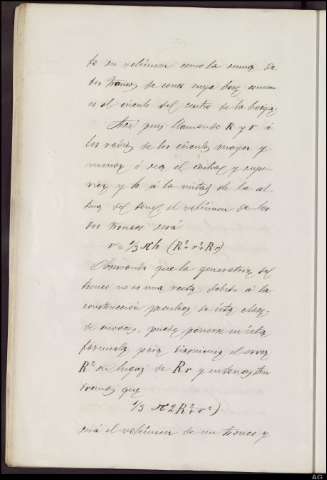 te su volumen como la suma de
dos troncos de cono cuya base comun
es el circulo del centro de la barrica
Asi pues llamando R y r á
los radios de los circulos mayor y
menor ó sea el central y supe-
rior y h á la mitad de la al-
tura del tonel el volumen de los
dos troncos será
v = 1/3 πh (R² r² Rr)
que la generatriz del
tronco no es una recta, debido á la
construcción de esta clase
de puede ponerse en esta
formula, para disminuir el error
R² en lugar de Rr y entonces ten
dremos que
1/3 π 2R² r²)
será el volumen de un tronco y